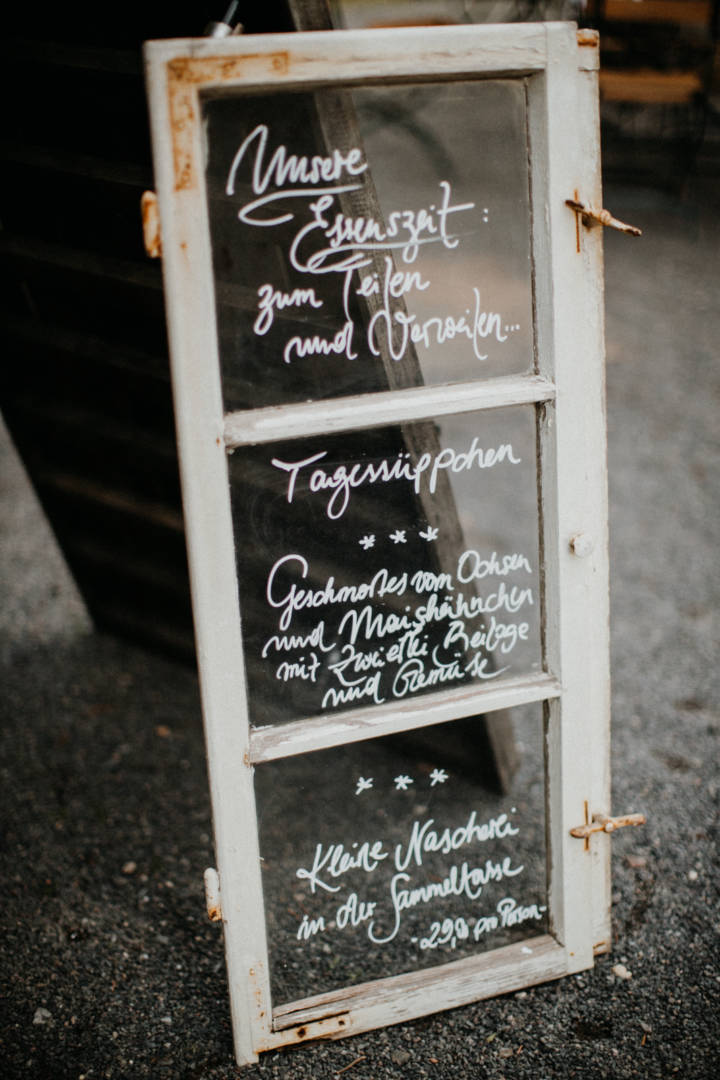 Unsere
Essenszeit:
zum Teilen
und Verweilen...
Tagessüppchen
***
Geschmortes vom Ochsen
und Maishähnchen
mit Zweierlei Beilage
und Gemüse
***
Kleine Nascherei
in der Sammeltasse
pro Person-